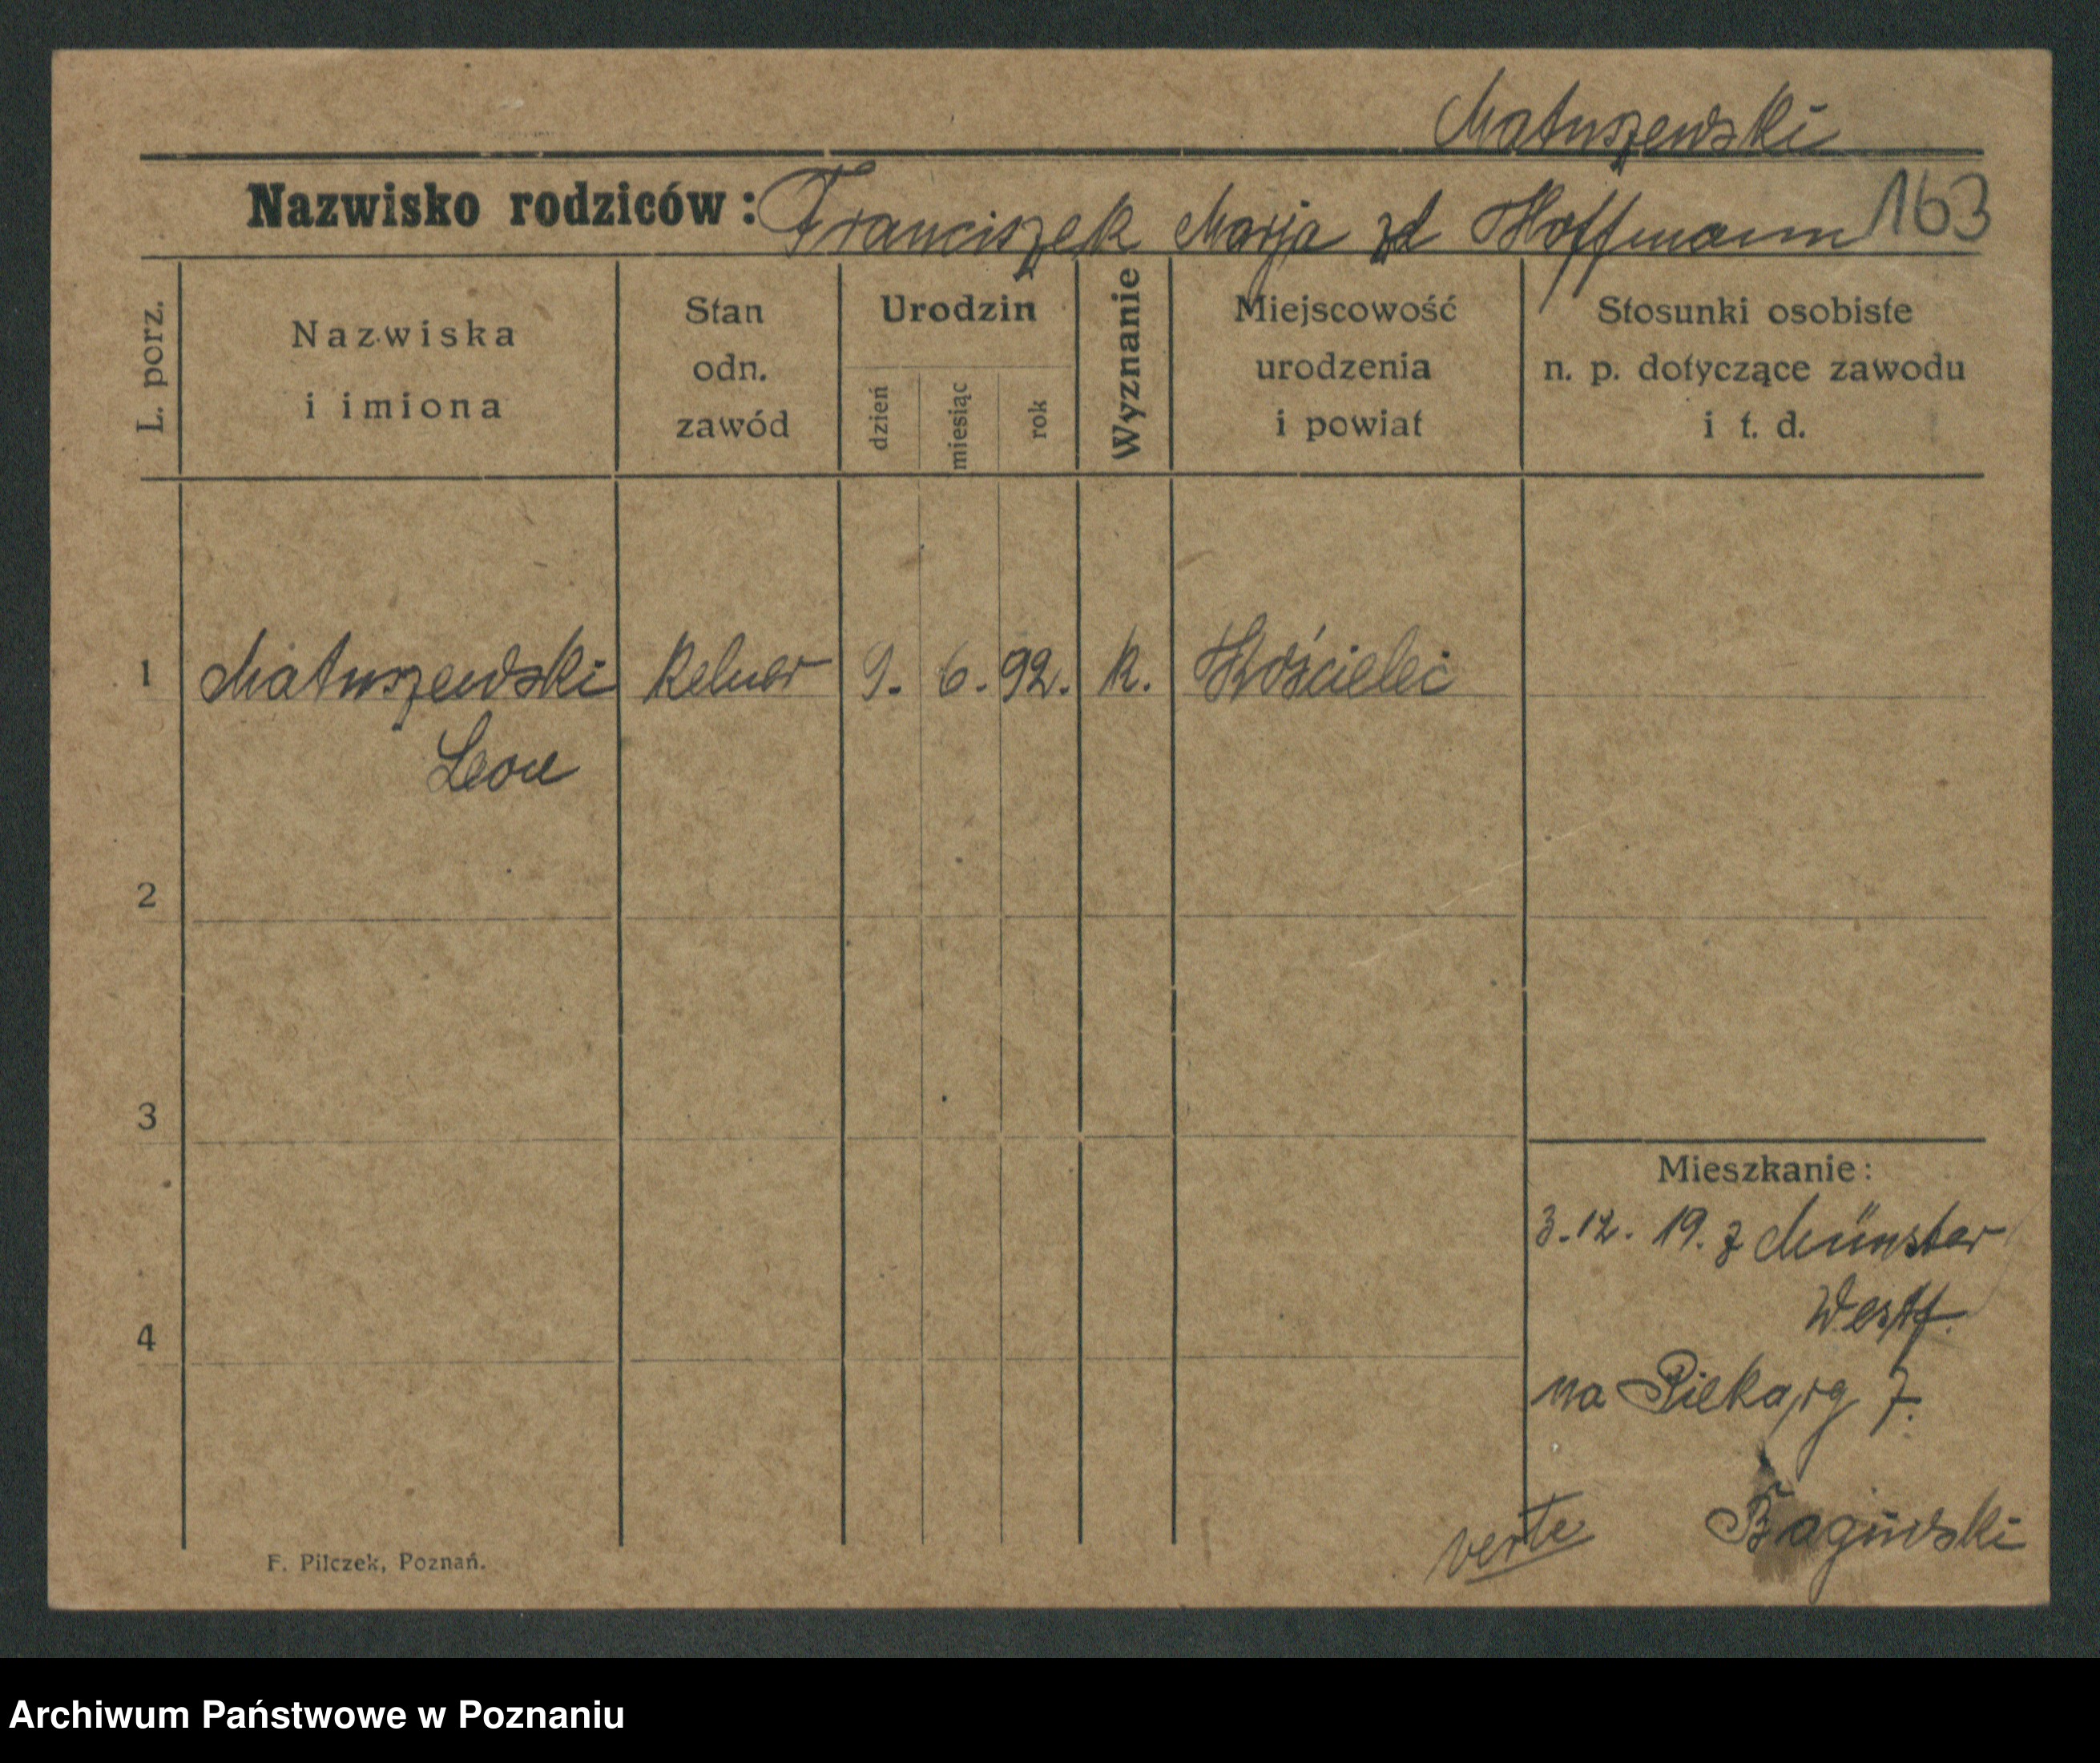 Matuszewski
Nazwisko rodziców: Franciszek Marja zd Hoffmann 163
L. porz.
Nazwiska
i imiona
Stan
odn.
zawód
Urodzin
dzień
miesiąc
rok
Wyznanie
Miejscowość
urodzenia
i powiat
Stosunki osobiste
n. p. dotyczące zawodu
i t. d.
1 Matuszewski Kelner 9. 6. 92. k. Kościelec
Leon
2
3
4
Mieszkanie:
3.12. 19. z Münster
Westf.
na 7.
verte
F. Pilczek, Poznań.
Archiwum Państwowe w Poznaniu